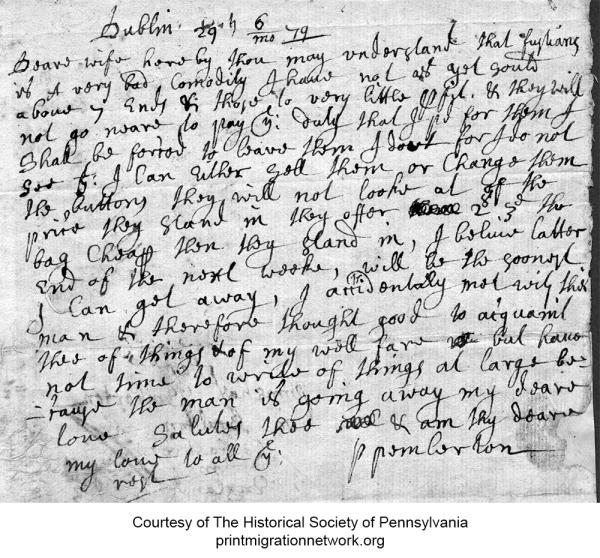 Dublin 29th 6 mo 79
Deare wife here by thou may vnderstand that fustians
is a very bad Comodity I haue not as yet sould
aboue 7 Ends & those to very little pfit. & they will
not go neare to pay ye: duty that I pd for them I
Shall be forced to leave them I dout for I do not
See yt: I Can Either Sell them or Change them
the buttons they will not looke at of the
price they Stand in they offer 2s 3d the
bag Cheap then they Stand in, I beliue latter
End of the next weeke, will be the soonest
I Can get away, I accidentally met with this
man & therefore thought good to acquaint
thee of things & of my well fare but haue
not time to write of things at large be=
=cause the man is going away my deare
loue Salutes thee & am thy deare
my loue to all ye: P pemberton
rest
Courtesy of The Historical Society of Pennsylvania
printmigrationnetwork.org